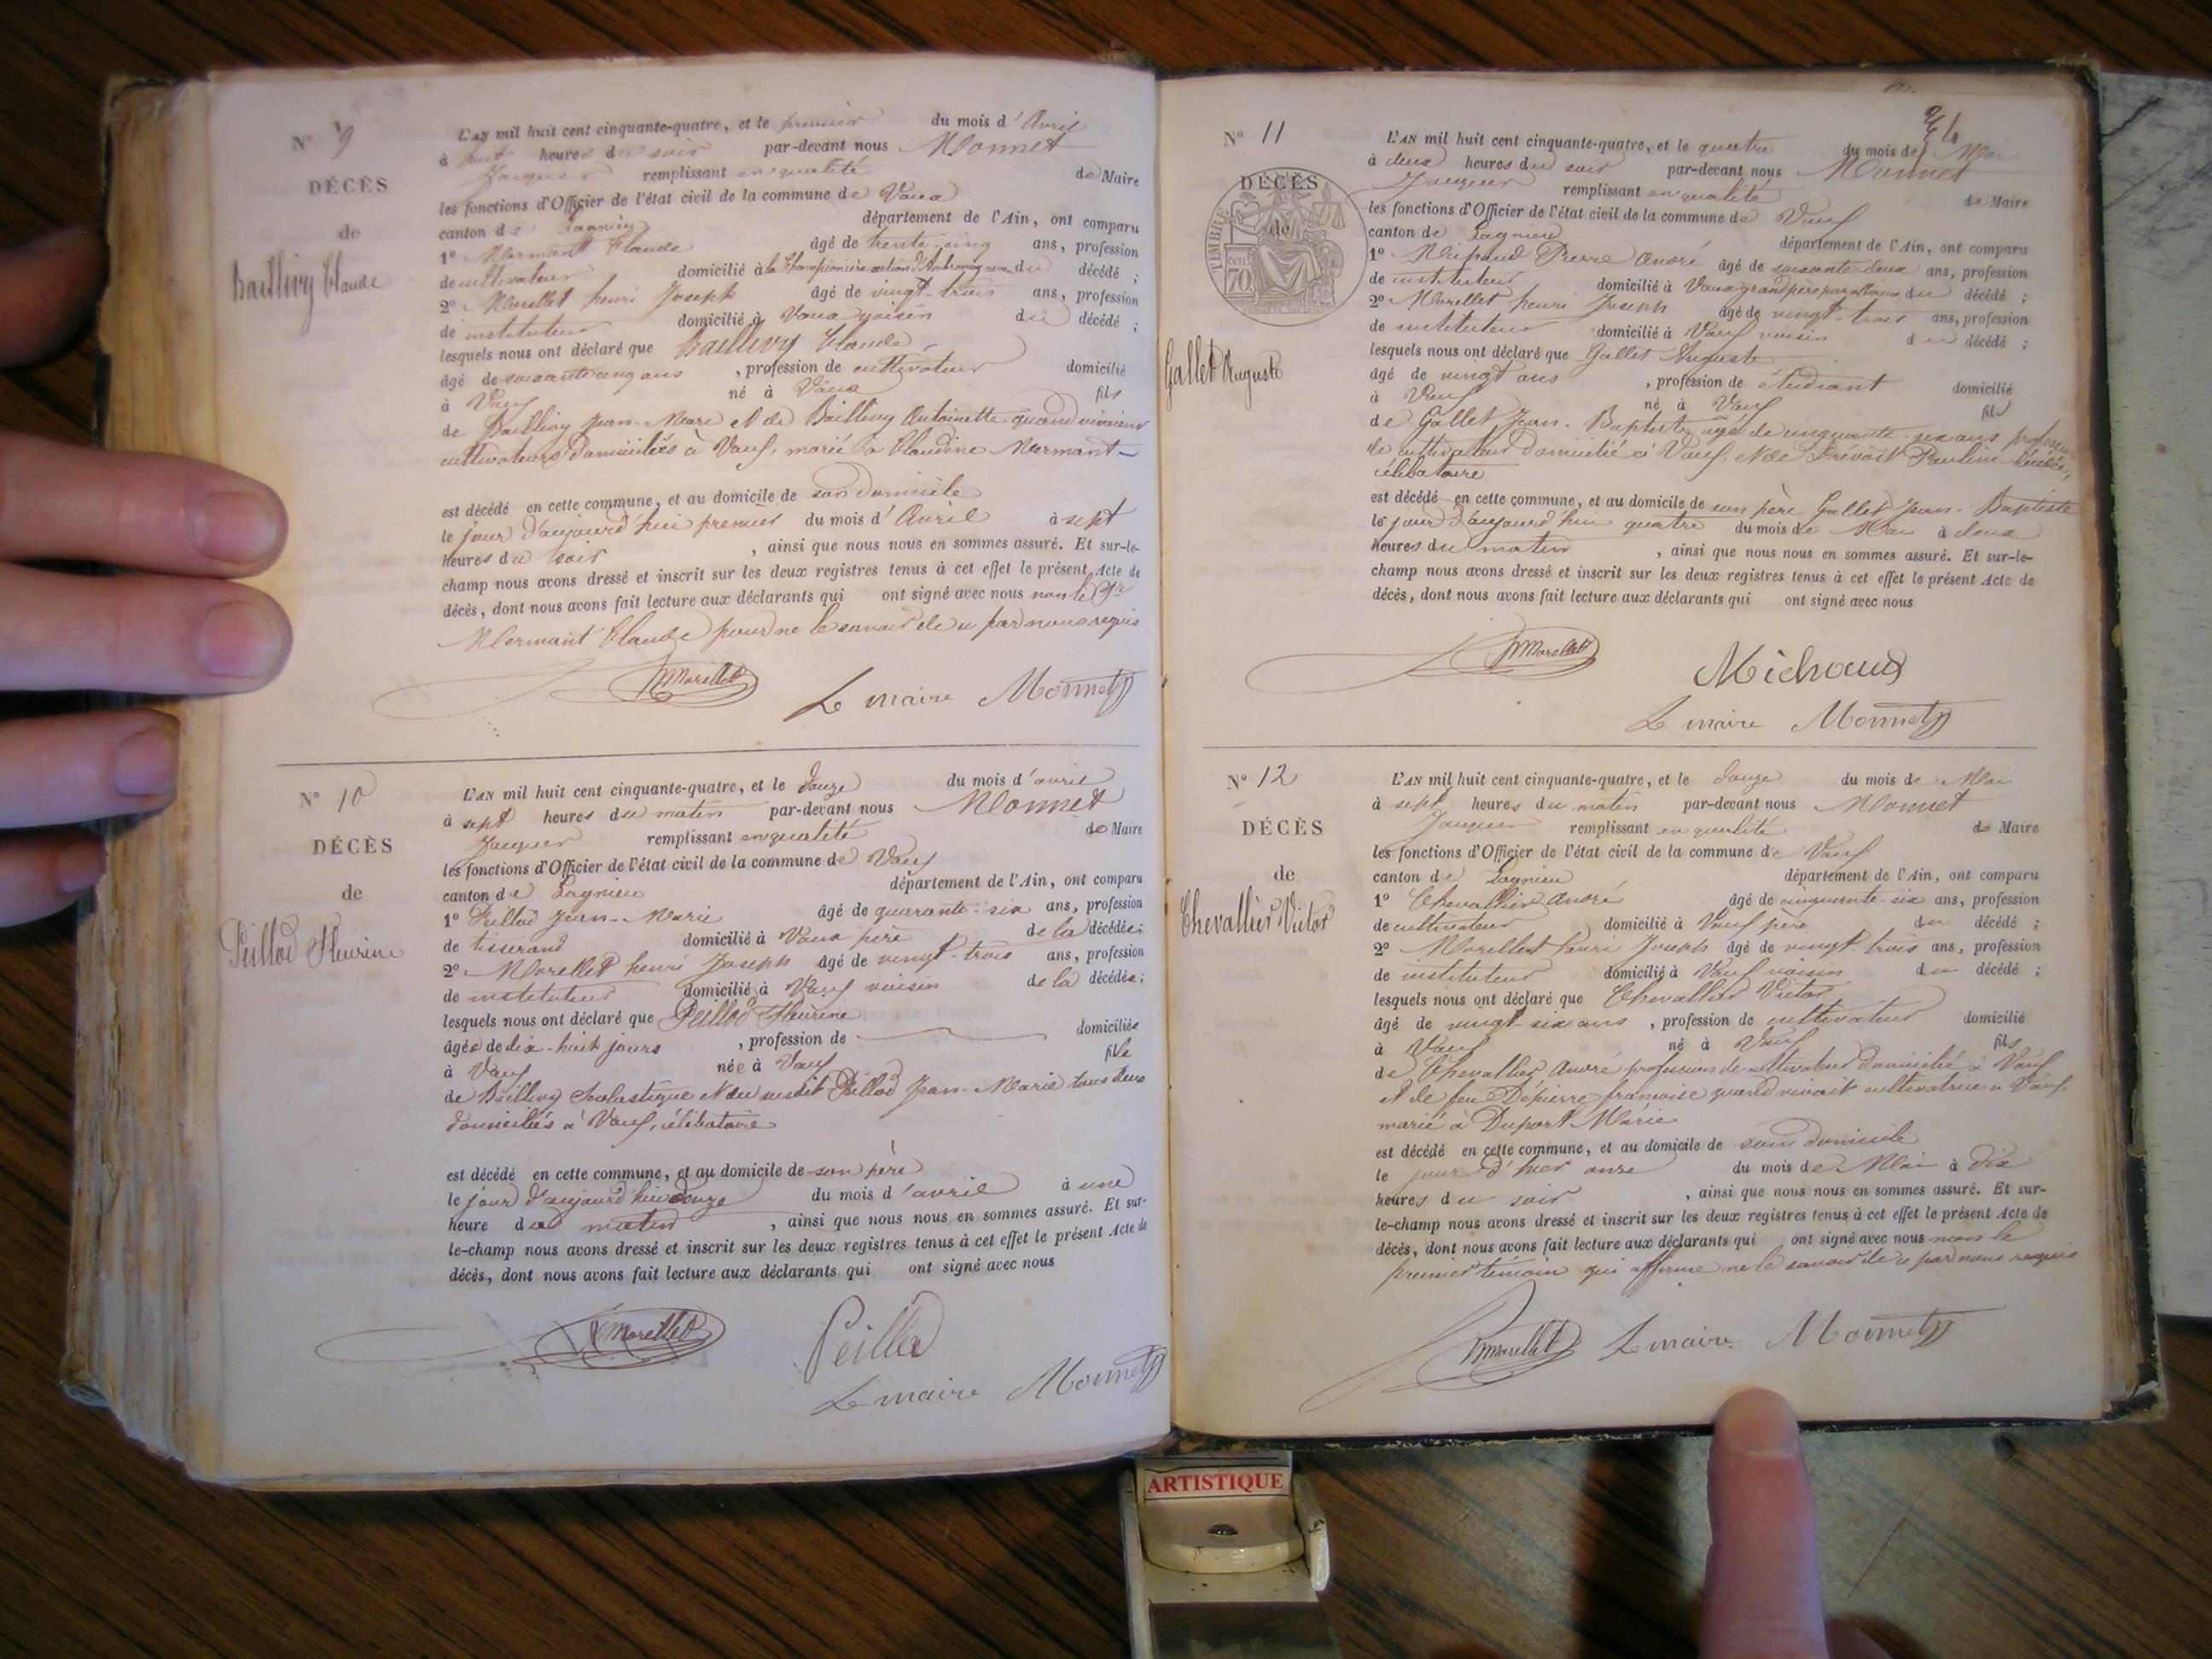 N° 9
DÉCÈS
de
Baillivy Claude
L'AN mil huit cent cinquante-quatre, et le premier du mois d'Avril
à huit heures du soir par-devant nous Monnet
Jacques remplissant en qualité de Maire
les fonctions d'Officier de l'état civil de la commune de Vaux
canton de Lagnieu département de l'Ain, ont comparu
1° Mermant Claude âgé de trente-cinq ans, profession
de cultivateur domicilié à la du décédé ;
2° Morellet henri Joseph âgé de vingt-trois ans, profession
de instituteur domicilié à Vaux voisin du décédé ;
lesquels nous ont déclaré que Baillivy Claude
âgé de soixante cinq ans , profession de cultivateur domicilié
à Vaux né à Vaux fils
de Baillivy Jean-Marie et de Baillivy Antoinette quand vivaient
cultivateurs domiciliés à Vaux, marié à Claudine Mermant
est décédé en cette commune, et au domicile de son domicile
le jour d'aujourd'hui premier du mois d'Avril à sept
heures du soir , ainsi que nous nous en sommes assuré. Et sur-le-
champ nous avons dressé et inscrit sur les deux registres tenus à cet effet le présent Acte de
décès, dont nous avons fait lecture aux déclarants qui ont signé avec nous non le
Mermant Claude pour ne le savoir de ce par nous requis
hMorellet
Le maire Monnet
N° 10
DÉCÈS
de
Peillod Fleurine
L'AN mil huit cent cinquante-quatre, et le douze du mois d'avril
à sept heures du matin par-devant nous Monnet
Jacques remplissant en qualité de Maire
les fonctions d'Officier de l'état civil de la commune de Vaux
canton de Lagnieu département de l'Ain, ont comparu
1° Peillod Jean-Marie âgé de quarante-six ans, profession
de tisserand domicilié à Vaux père de la décédée ;
2° Morellet henri Joseph âgé de vingt-trois ans, profession
de instituteur domicilié à Vaux voisin de la décédée ;
lesquels nous ont déclaré que Peillod Fleurine
âgée de dix-huit jours , profession de domiciliée
à Vaux née à Vaux fille
de Baillivy Scolastique et du susdit Peillod Jean-Marie tous deux
domiciliés à Vaux, célibataire
est décédé en cette commune, et au domicile de son père
le jour d'aujourd'hui douze du mois d'avril à une
heure du matin , ainsi que nous nous en sommes assuré. Et sur-
le-champ nous avons dressé et inscrit sur les deux registres tenus à cet effet le présent Acte de
décès, dont nous avons fait lecture aux déclarants qui ont signé avec nous
hMorellet
Peillod
Le maire Monnet
N° 11
DÉCÈS
de
TIMBRE
70
Gallet Auguste
L'AN mil huit cent cinquante-quatre, et le quatre du mois de Mai
à deux heures du soir par-devant nous Monnet
Jacques remplissant en qualité de Maire
les fonctions d'Officier de l'état civil de la commune de Vaux
canton de Lagnieu département de l'Ain, ont comparu
1° Michaud Pierre André âgé de soixante-deux ans, profession
de instituteur domicilié à Vaux grand père par alliance du décédé ;
2° Morellet henri Joseph âgé de vingt-trois ans, profession
de instituteur domicilié à Vaux voisin du décédé ;
lesquels nous ont déclaré que Gallet Auguste
âgé de vingt ans , profession de étudiant domicilié
à Vaux né à Vaux fils
de Gallet Jean-Baptiste âgé de cinquante-six ans profession
de cultivateur domicilié à Vaux, et de Prévost Pauline décédée,
célibataire
est décédé en cette commune, et au domicile de son père Gallet Jean-Baptiste
le jour d'aujourd'hui quatre du mois de Mai à deux
heures du matin , ainsi que nous nous en sommes assuré. Et sur-le-
champ nous avons dressé et inscrit sur les deux registres tenus à cet effet le présent Acte de
décès, dont nous avons fait lecture aux déclarants qui ont signé avec nous
hMorellet
Michaud
Le maire Monnet
N° 12
DÉCÈS
de
Chevallier Victor
L'AN mil huit cent cinquante-quatre, et le douze du mois de Mai
à sept heures du matin par-devant nous Monnet
Jacques remplissant en qualité de Maire
les fonctions d'Officier de l'état civil de la commune de Vaux
canton de Lagnieu département de l'Ain, ont comparu
1° Chevallier André âgé de cinquante-six ans, profession
de cultivateur domicilié à Vaux père du décédé ;
2° Morellet henri Joseph âgé de vingt-trois ans, profession
de instituteur domicilié à Vaux voisin du décédé ;
lesquels nous ont déclaré que Chevallier Victor
âgé de vingt-six ans , profession de cultivateur domicilié
à Vaux né à Vaux fils
de Chevallier André profession de cultivateur domicilié à Vaux
et de feu Dépierre françoise quand vivait cultivatrice à Vaux,
marié à Duport Marie
est décédé en cette commune, et au domicile de son domicile
le jour d'hier onze du mois de Mai à dix
heures du soir , ainsi que nous nous en sommes assuré. Et sur-
le-champ nous avons dressé et inscrit sur les deux registres tenus à cet effet le présent Acte de
décès, dont nous avons fait lecture aux déclarants qui ont signé avec nous non le
premier témoin qui affirme ne le savoir de ce par nous requis
hMorellet Le maire Monnet
ARTISTIQUE